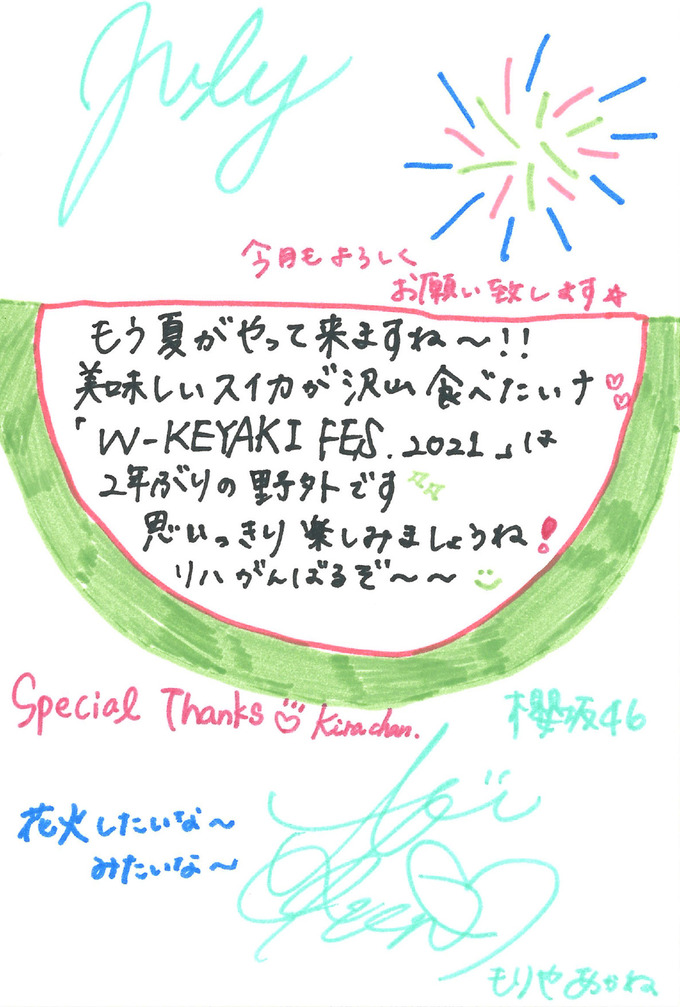 July
今月もよろしく
お願い致します☆
もう夏がやって来ますね〜!!
美味しいスイカが沢山食べたいナ♡♡
「W-KEYAKI FES. 2021」は
2年ぶりの野外です
思いっきり楽しみましょうね!
リハがんばるぞ〜〜
Special Thanks Kirachan.
櫻坂46
花火したいな〜
みたいな〜
もりやあかね